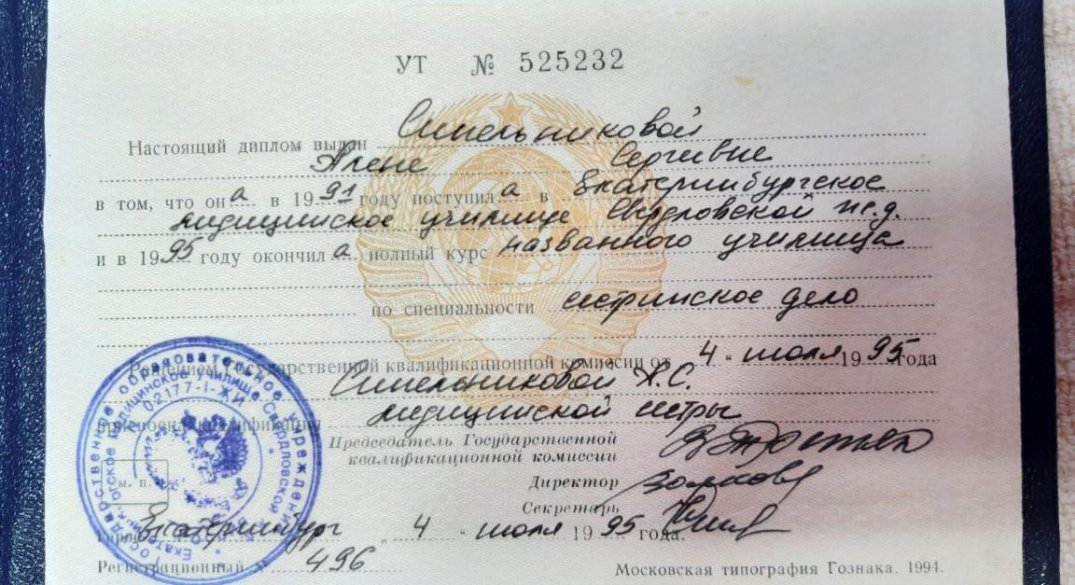 УТ № 525232
Настоящий диплом выдан Синельниковой
Алене Сергеевне
в том, что она в 1991 году поступила в Екатеринбургское
медицинское училище Свердловской ж.д.
и в 1995 году окончила полный курс названного училища
по специальности сестринское дело
Решением Государственной квалификационной комиссии от 4 июля 1995 года
Синельниковой А.С.
присвоена квалификация медицинской сестры
Председатель Государственной
квалификационной комиссии
Директор
Секретарь
Екатеринбург „ 4 “ июля 1995 года.
Регистрационный № 496
Московская типография Гознака. 1994.
02177-1-Ж/И
м. п.